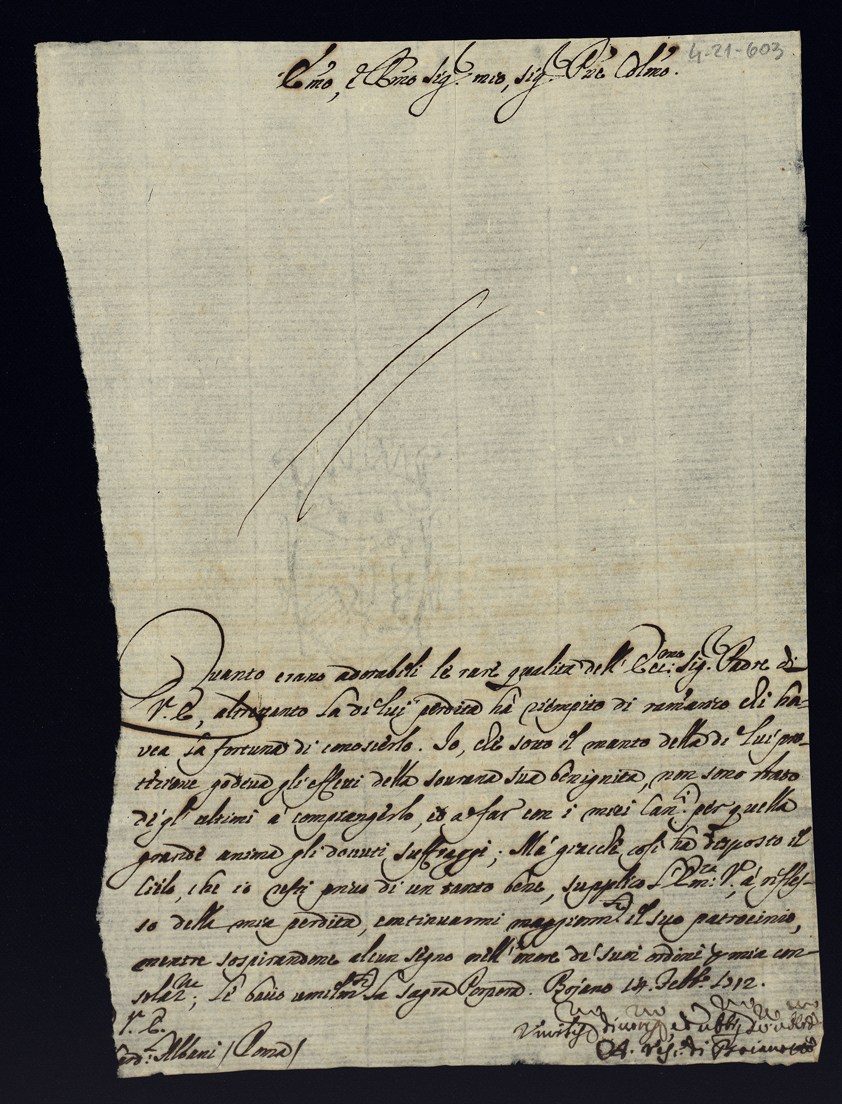 4-21-603
Em̃o, e Rm̃o Sig.r mio, Sig.r Pñe Colmo.
Quanto erano adorabili le rare qualità dell' Ecc.mo Sig. Padre di
V. E., altretanto la di lui perdita hà riempito di ramarico chi ha-
vea la fortuna di conoscerlo. Io, che sotto il manto della di lui pro-
tettione godeva gl'effetti della sourana sua benignità, non sono stato
de gl' ultimi à compiangerlo, et à far con i miei Can.ci per quella
grande anima gli douuti suffraggi; Mà giacché così hà disposto il
Cielo, che io resti priuo di un tanto bene, supplico l'Em.za V.a à rifles-
so della mia perdita, continuarmi maggiorm.te il suo patrocinio,
mentre sospirandone alcun segno nell' onore de' suoi ordini p mia con-
solaz.ne; le bacio umilm.te la sagra Porpora. Bojano 14. Febb.o 1712.
V. E.
Albani (Roma)
di Boiano